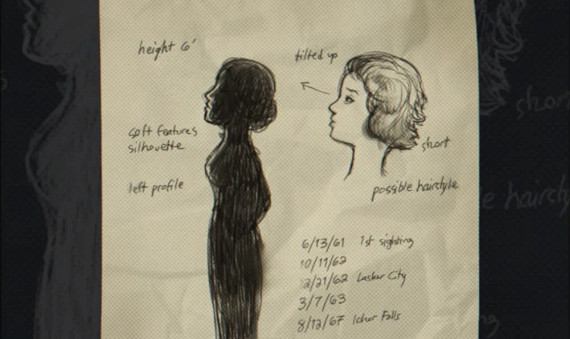 height 6'
tilted up
soft features
silhouette
left profile
short
possible hairstyle
6/13/61 1st sighting
10/11/62
12/21/62 Lasker City
3/7/63
8/12/67 Ichor Falls